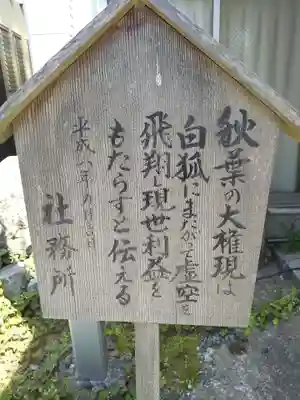 秋葉の大権現は
白狐にまたがって虚空を
飛翔し現世利益を
もたらすと伝える
平成八年九月吉日
社務所